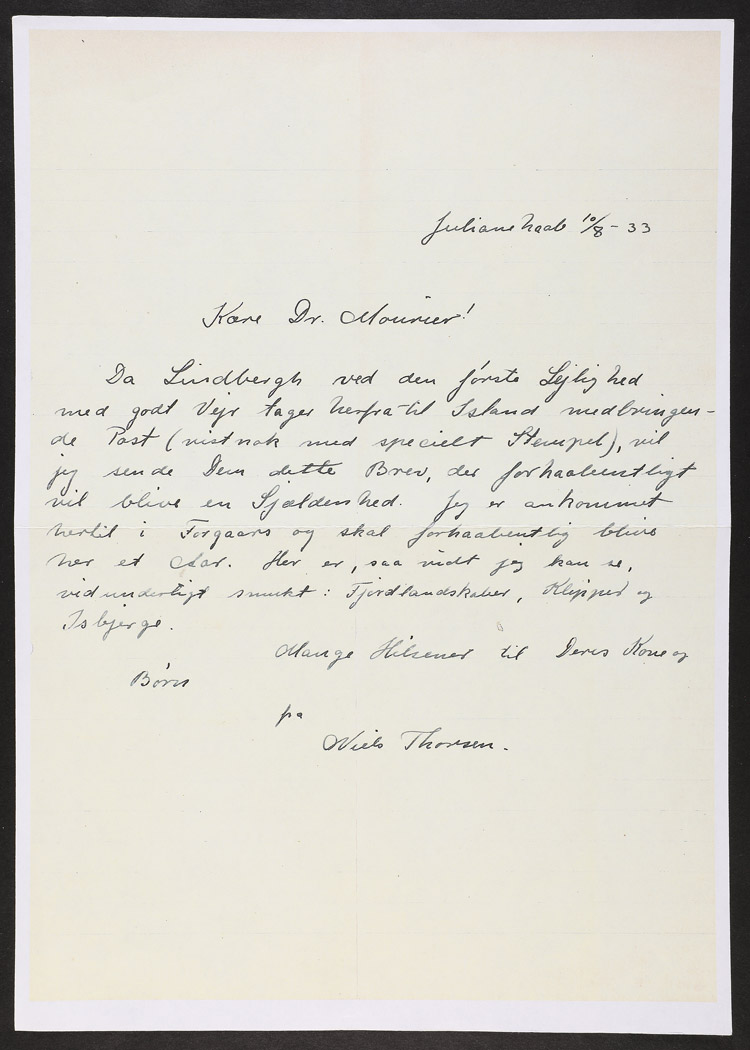 Julianehaab 10/8 - 33
Kære Dr. Mourier!
Da Lindbergh ved den første Lejlighed
med godt Vejr tager herfra til Island medbringen-
de Post (vistnok med specielt Stempel), vil
jeg sende Dem dette Brev, der forhaabentligt
vil blive en Sjældenhed. Jeg er ankommet
hertil i Forgaars og skal forhaabentlig blive
her et Aar. Her er, saa vidt jeg kan se,
vidunderligt smukt: Fjordlandskaber, Klipper og
Isbjerge.
Mange Hilsener til Deres Kone og
Børn
fra
Niels Thorsen.